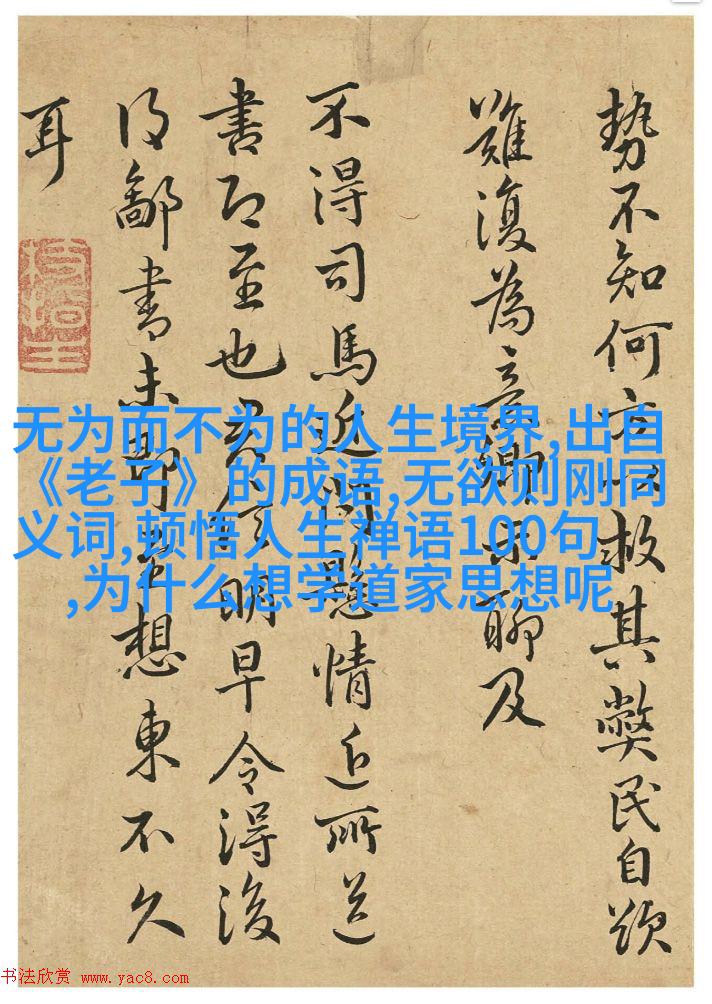 勢不知何方以救其弊民自
難復為意卿示聊及
不得司馬近問懸情近所送
書即至也君信明早令得後
得鄙書未耶想東不久
耳
无为而不为的人生境界,出自
《老子》的成语,无欲则刚同
义词,顿悟人生禅语100句
,为什么想学道家思想呢
书法欣赏 www.yac8.com